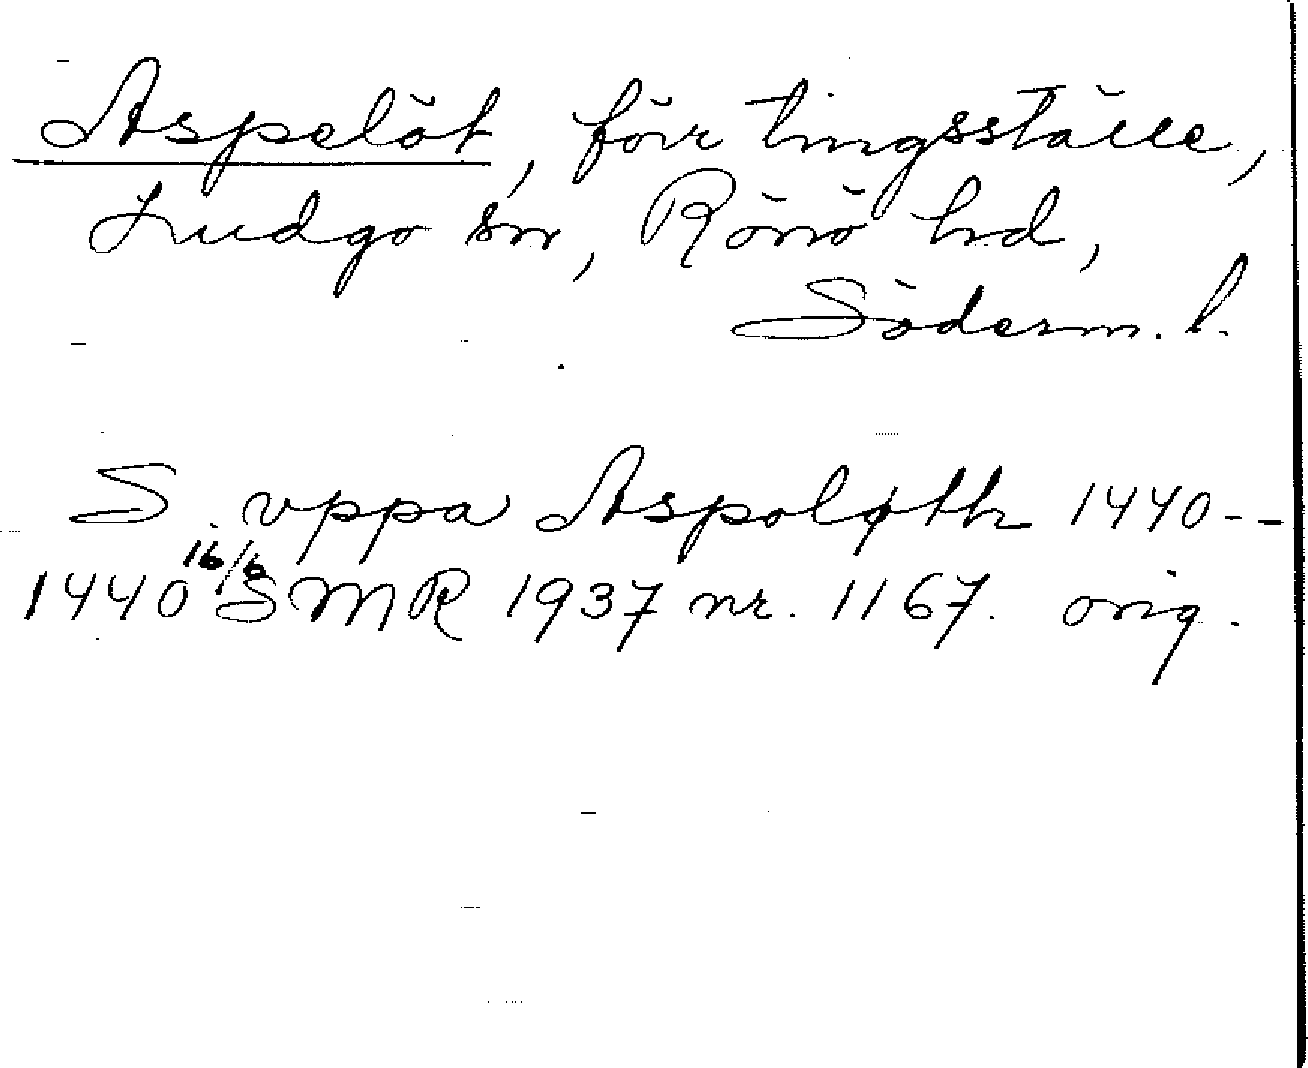 Aspelöt, förr tingsställe,
Ludgo sn, Rönö hd,
Söderm. l.
S. vppa Aspoløth 1440--
1440 16/6 SMR 1937 nr. 1167. orig.